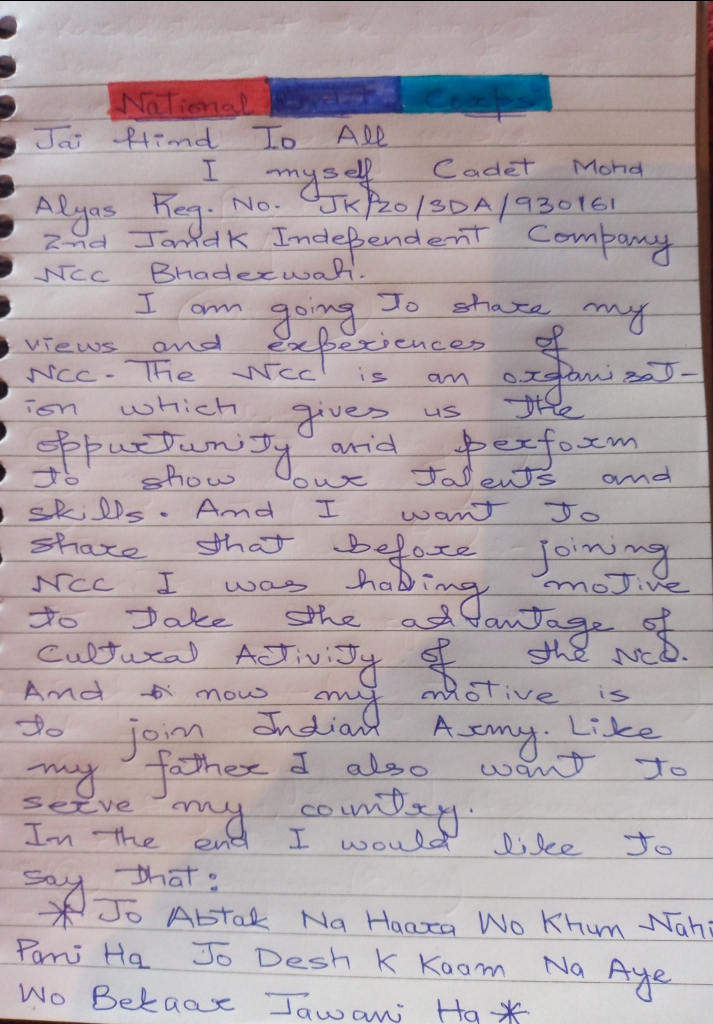 National Cadet Corps
Jai Hind To All
I myself Cadet Mohd
Alyas Reg. No. JK/20/SDA/930161
2nd JandK Independent Company
NCC Bhaderwah.
I am going To share my
views and experiences of
NCC. The NCC is an organizat-
ion which gives us the
oppurtunity and perform
to show our talents and
skills. And I want To
share that before joining
NCC I was having motive
to take the advantage of
Cultural Activity of the NCC.
And now my motive is
to join Indian Army. Like
my father I also want To
serve my country.
In the end I would like To
say that:
* Jo Abtak Na Haara Wo Khun Nahi
Pani Ha Jo Desh K Kaam Na Aye
Wo Bekaar Jawani Ha *